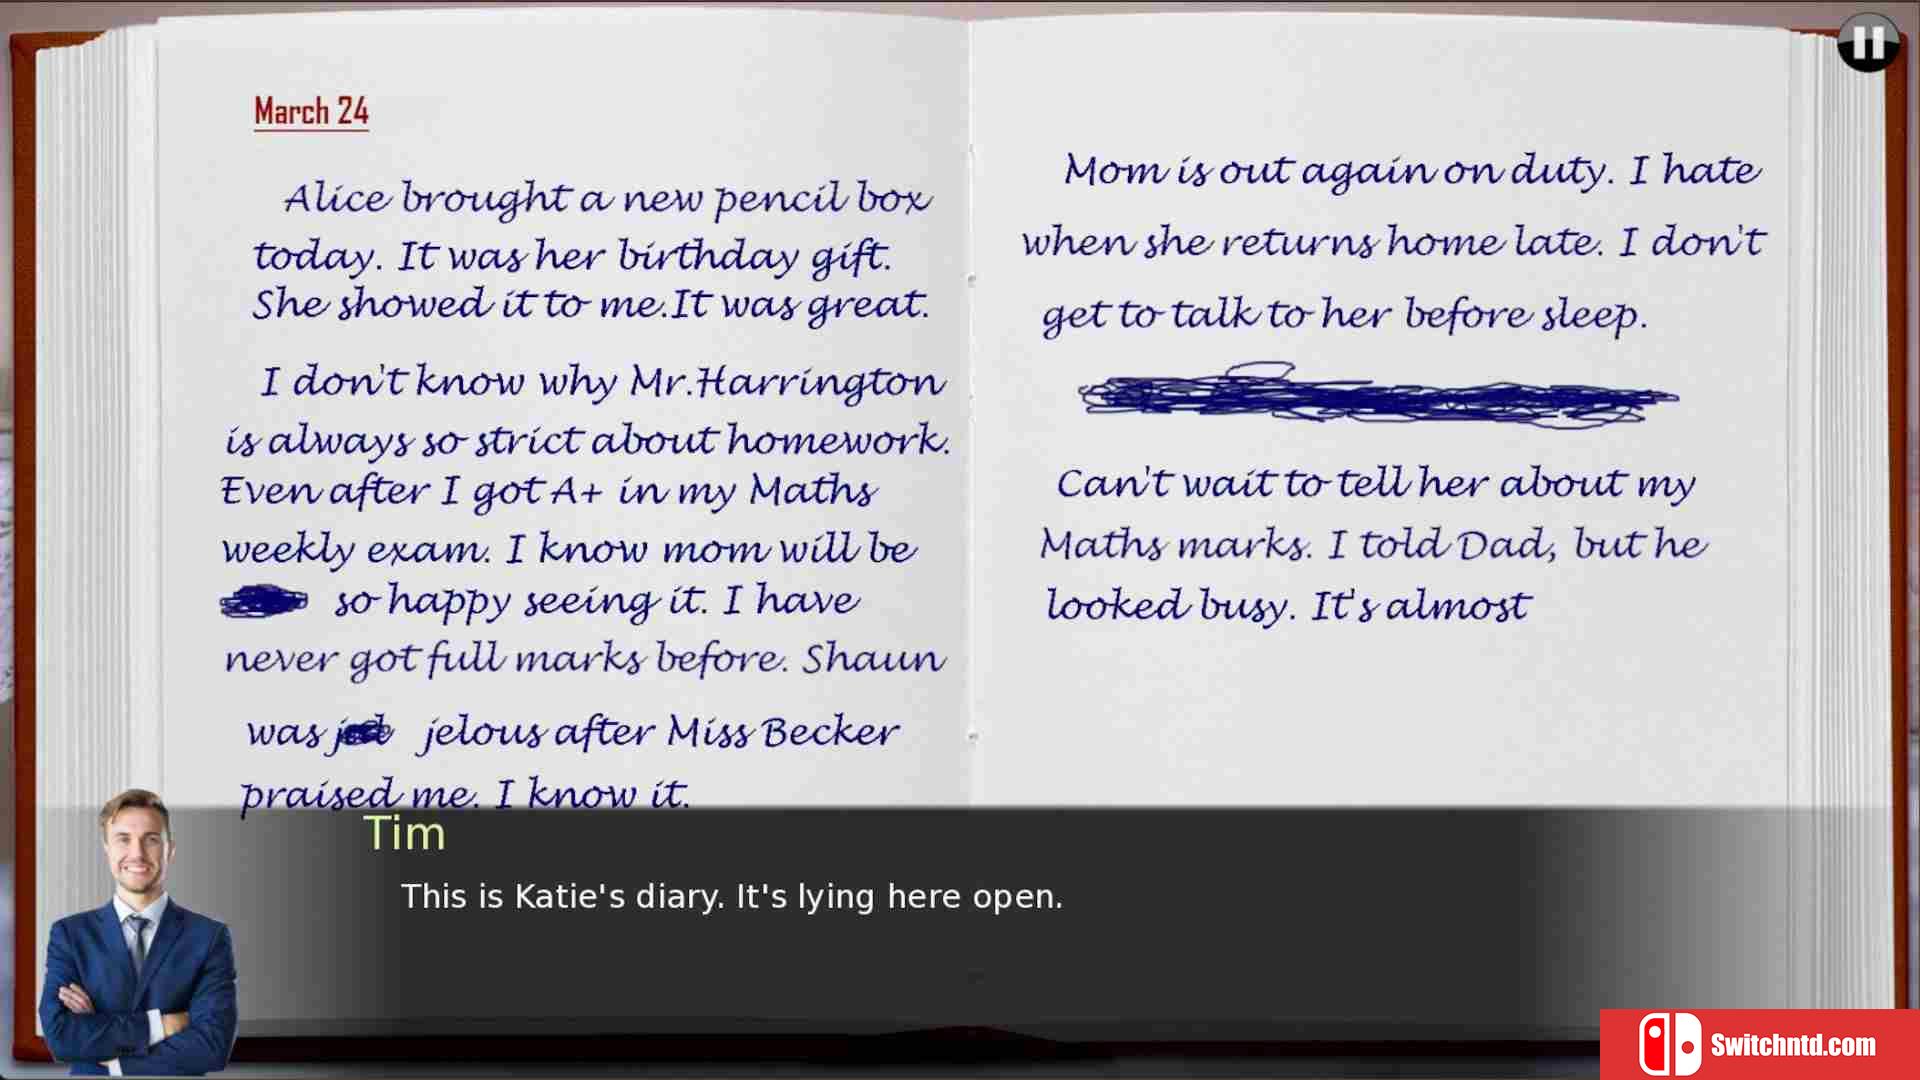 March 24
Alice brought a new pencil box
today. It was her birthday gift.
She showed it to me.It was great.
I don't know why Mr.Harrington
is always so strict about homework.
Even after I got A+ in my Maths
weekly exam. I know mom will be
so happy seeing it. I have
never got full marks before. Shaun
was jelous after Miss Becker
praised me. I know it.
Mom is out again on duty. I hate
when she returns home late. I don't
get to talk to her before sleep.
Can't wait to tell her about my
Maths marks. I told Dad, but he
looked busy. It's almost
Tim
This is Katie's diary. It's lying here open.
Switchntd.com